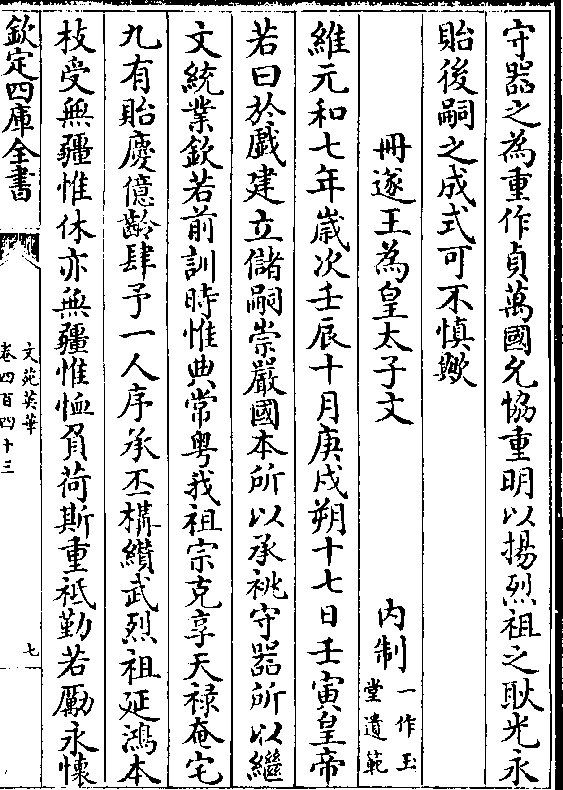 守器之為重作貞萬國允協重明以揚烈祖之耿光永
貽後嗣之成式可不慎歟
冊遂王為皇太子文 内制 一作玉堂遺範
維元和七年歲次壬辰十月庚戌朔十七日壬寅皇帝
若曰於戲建立儲嗣崇嚴國本所以承祧守器所以繼
文統業欽若前訓時惟典常粤我祖宗克享天禄奄宅
九有貽慶億齡肆予一人序承丕構纘武烈祖延鴻本
枝受無疆惟休亦無疆惟恤負荷斯重祗勤若厲永懷
欽定四庫全書
文苑英華
卷四百四十三
七